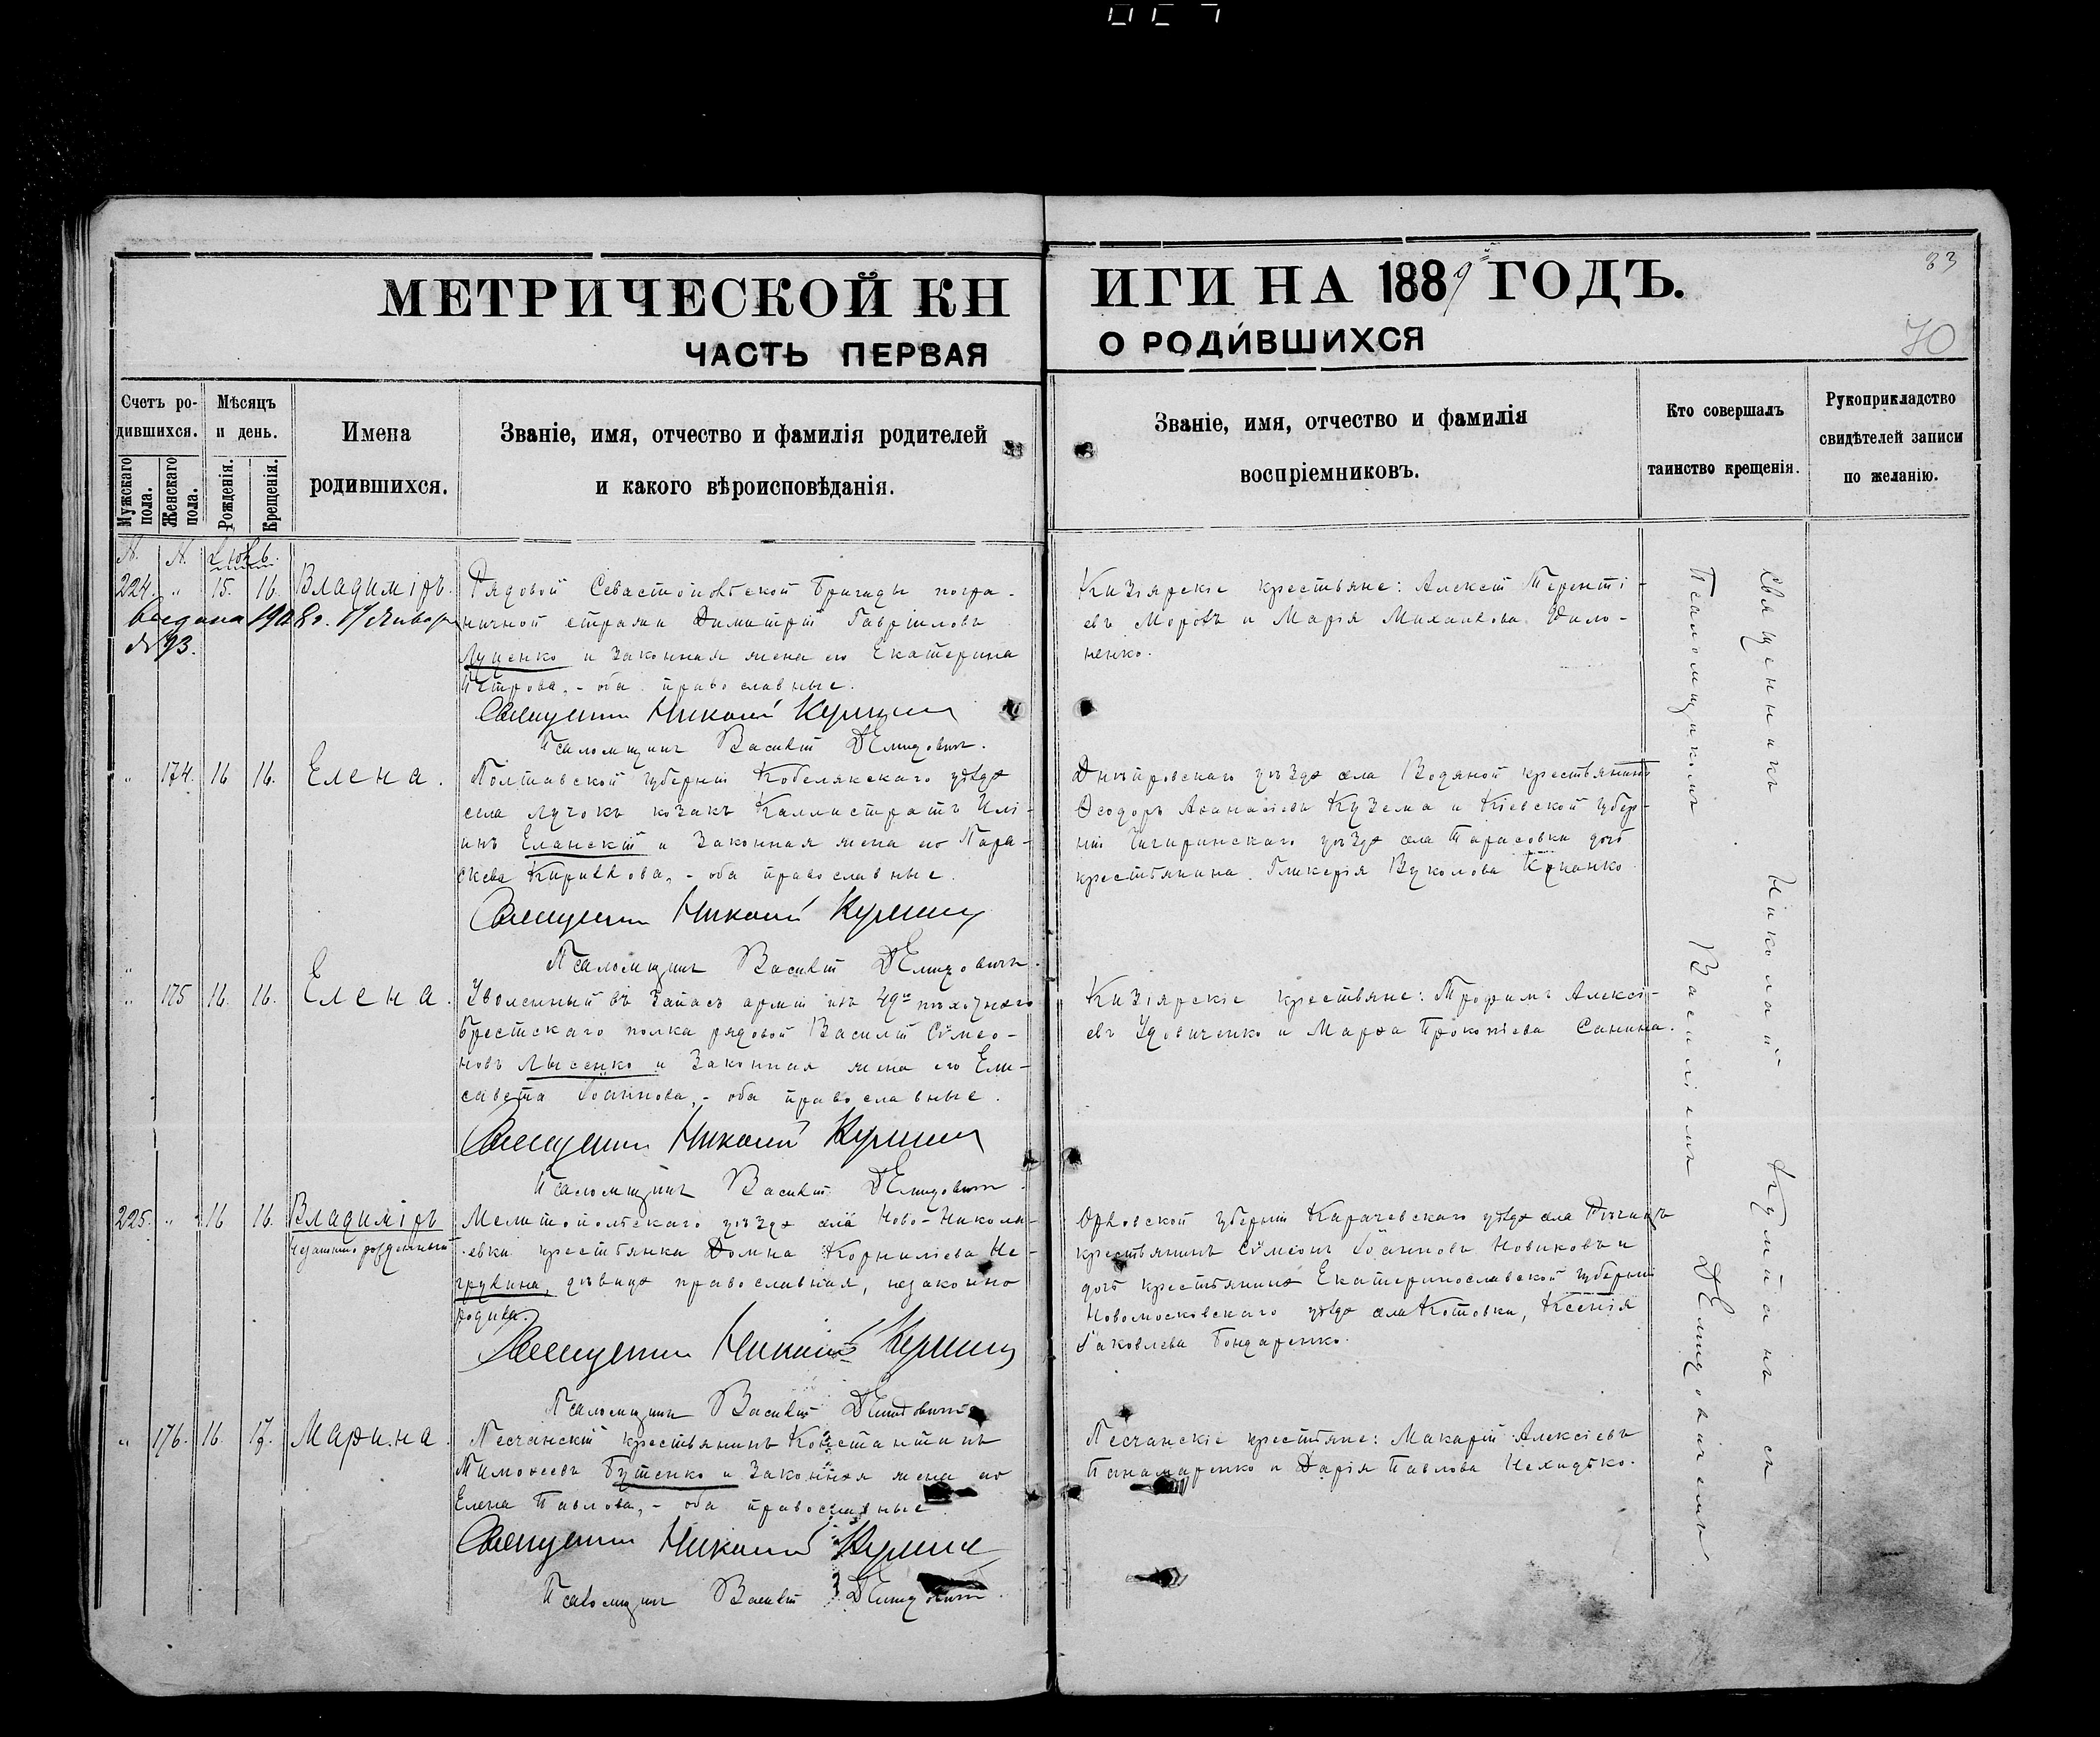 МЕТРИЧЕСКОЙ КНИГИ НА 1889й ГОДЪ.
33
ЧАСТЬ ПЕРВАЯ О РОДИВШИХСЯ
70
Счетъ ро-
дившихся.
Мужскаго пола.
Женскаго пола.
Мѣсяцъ
и день.
Рожденія.
Крещенія.
Имена
родившихся.
Званіе, имя, отчество и фамилія родителей
и какого вѣроисповѣданія.
Званіе, имя, отчество и фамилія
воспріемниковъ.
Кто совершалъ
таинство крещенія.
Рукоприкладство
свидѣтелей записи
по желанію.
№ №
224. " 15. 16. Владиміръ.
Рядовой Севастопольской бригады погра-
ничной стражи Димитрій Гавріиловъ
Луценко и законная жена его Екатерина
Петрова, - оба православные.
Священникъ Николай
Псаломщикъ Василій Демидовичъ.
Января
№ 93.
Кизіярскіе крестьяне: Алексій Теренті-
евъ и Марія Михаилова Фило-
ненко.
" 174. 16 16. Елена.
Полтавской губерніи Кобелякскаго уѣзда
села Лучокъ козакъ Каллистратъ Илі-
инъ Еланскій и законная жена его Пара-
скева Кириллова, - оба православные.
Священникъ Николай
Псаломщикъ Василій Демидовичъ.
Днѣпровскаго уѣзда села Водяной крестьянинъ
Ѳеодоръ Аѳанасіевъ Кузема и Кіевской губер-
ніи Чигиринскаго уѣзда села Тарасовки дочь
крестьянина Гликерія Вуколова
" 175 16. 16. Елена.
Уволенный въ запасъ арміи изъ 49го пѣхотнаго
Брестскаго полка рядовой Василій Сѵмео-
новъ Лысенко и законная жена его Ели-
савета Іоаннова, - оба православные.
Священникъ Николай
Псаломщикъ Василій Демидовичъ.
Кизіярскіе крестьяне: Трофимъ Алексі-
евъ Удовиченко и Марѳа Прокопіева Санина.
225. " 16 16. Владиміръ
незаконно рожденный
Мелитопольскаго уѣзда села Ново-Никола-
евки крестьянка Домна Корниліева Не-
грукина, дѣвица православная, незаконно
родила.
Священникъ Николай
Псаломщикъ Василій Демидовичъ.
Орловской губерніи Карачевскаго уѣзда села
крестьянинъ Сѵмеонъ Іоанновъ Новиковъ и
дочь крестьянина Екатеринославской губерніи
Новомосковскаго уѣзда села Котовки, Ксенія
Іаковлева Бондаренко.
" 176. 16. 17. Марина.
Песчанскій крестьянинъ Константинъ
Тимоѳеевъ Бутенко и законная жена его
Елена Павлова, - оба православные.
Священникъ Николай
Псаломщикъ Василій Демидовичъ.
Песчанскіе крестьяне: Макарій Алексіевъ
Панамаренко и Дарія Павлова
Священникъ Николай
Псаломщикомъ Василіемъ Демидовичемъ